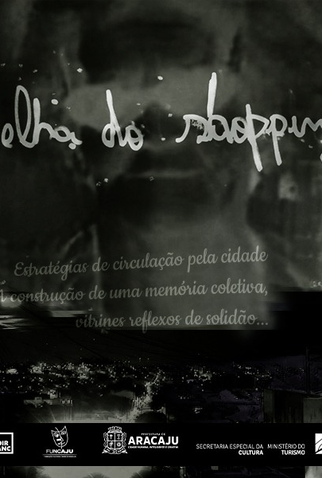 elha do shoppin
Estratégias de circulação pela cidade
construção de uma memória coletiva,
vitrines reflexos de solidão...
DIR
ANC
FUNCAJU
PREFEITURA DE
ARACAJU
SECRETARIA ESPECIAL DA
CULTURA
MINISTÉRIO DO
TURISMO